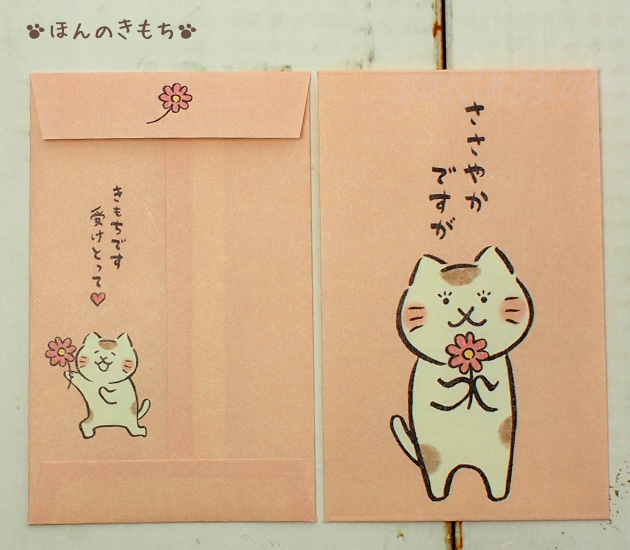 ほんのきもち
きもちです
受けとって
ささやか
ですが